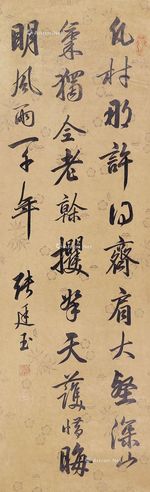 凡材那許得齊肩大壑深山
氣獨全老幹攫拏天護惜晦
明風雨一千年
張廷玉